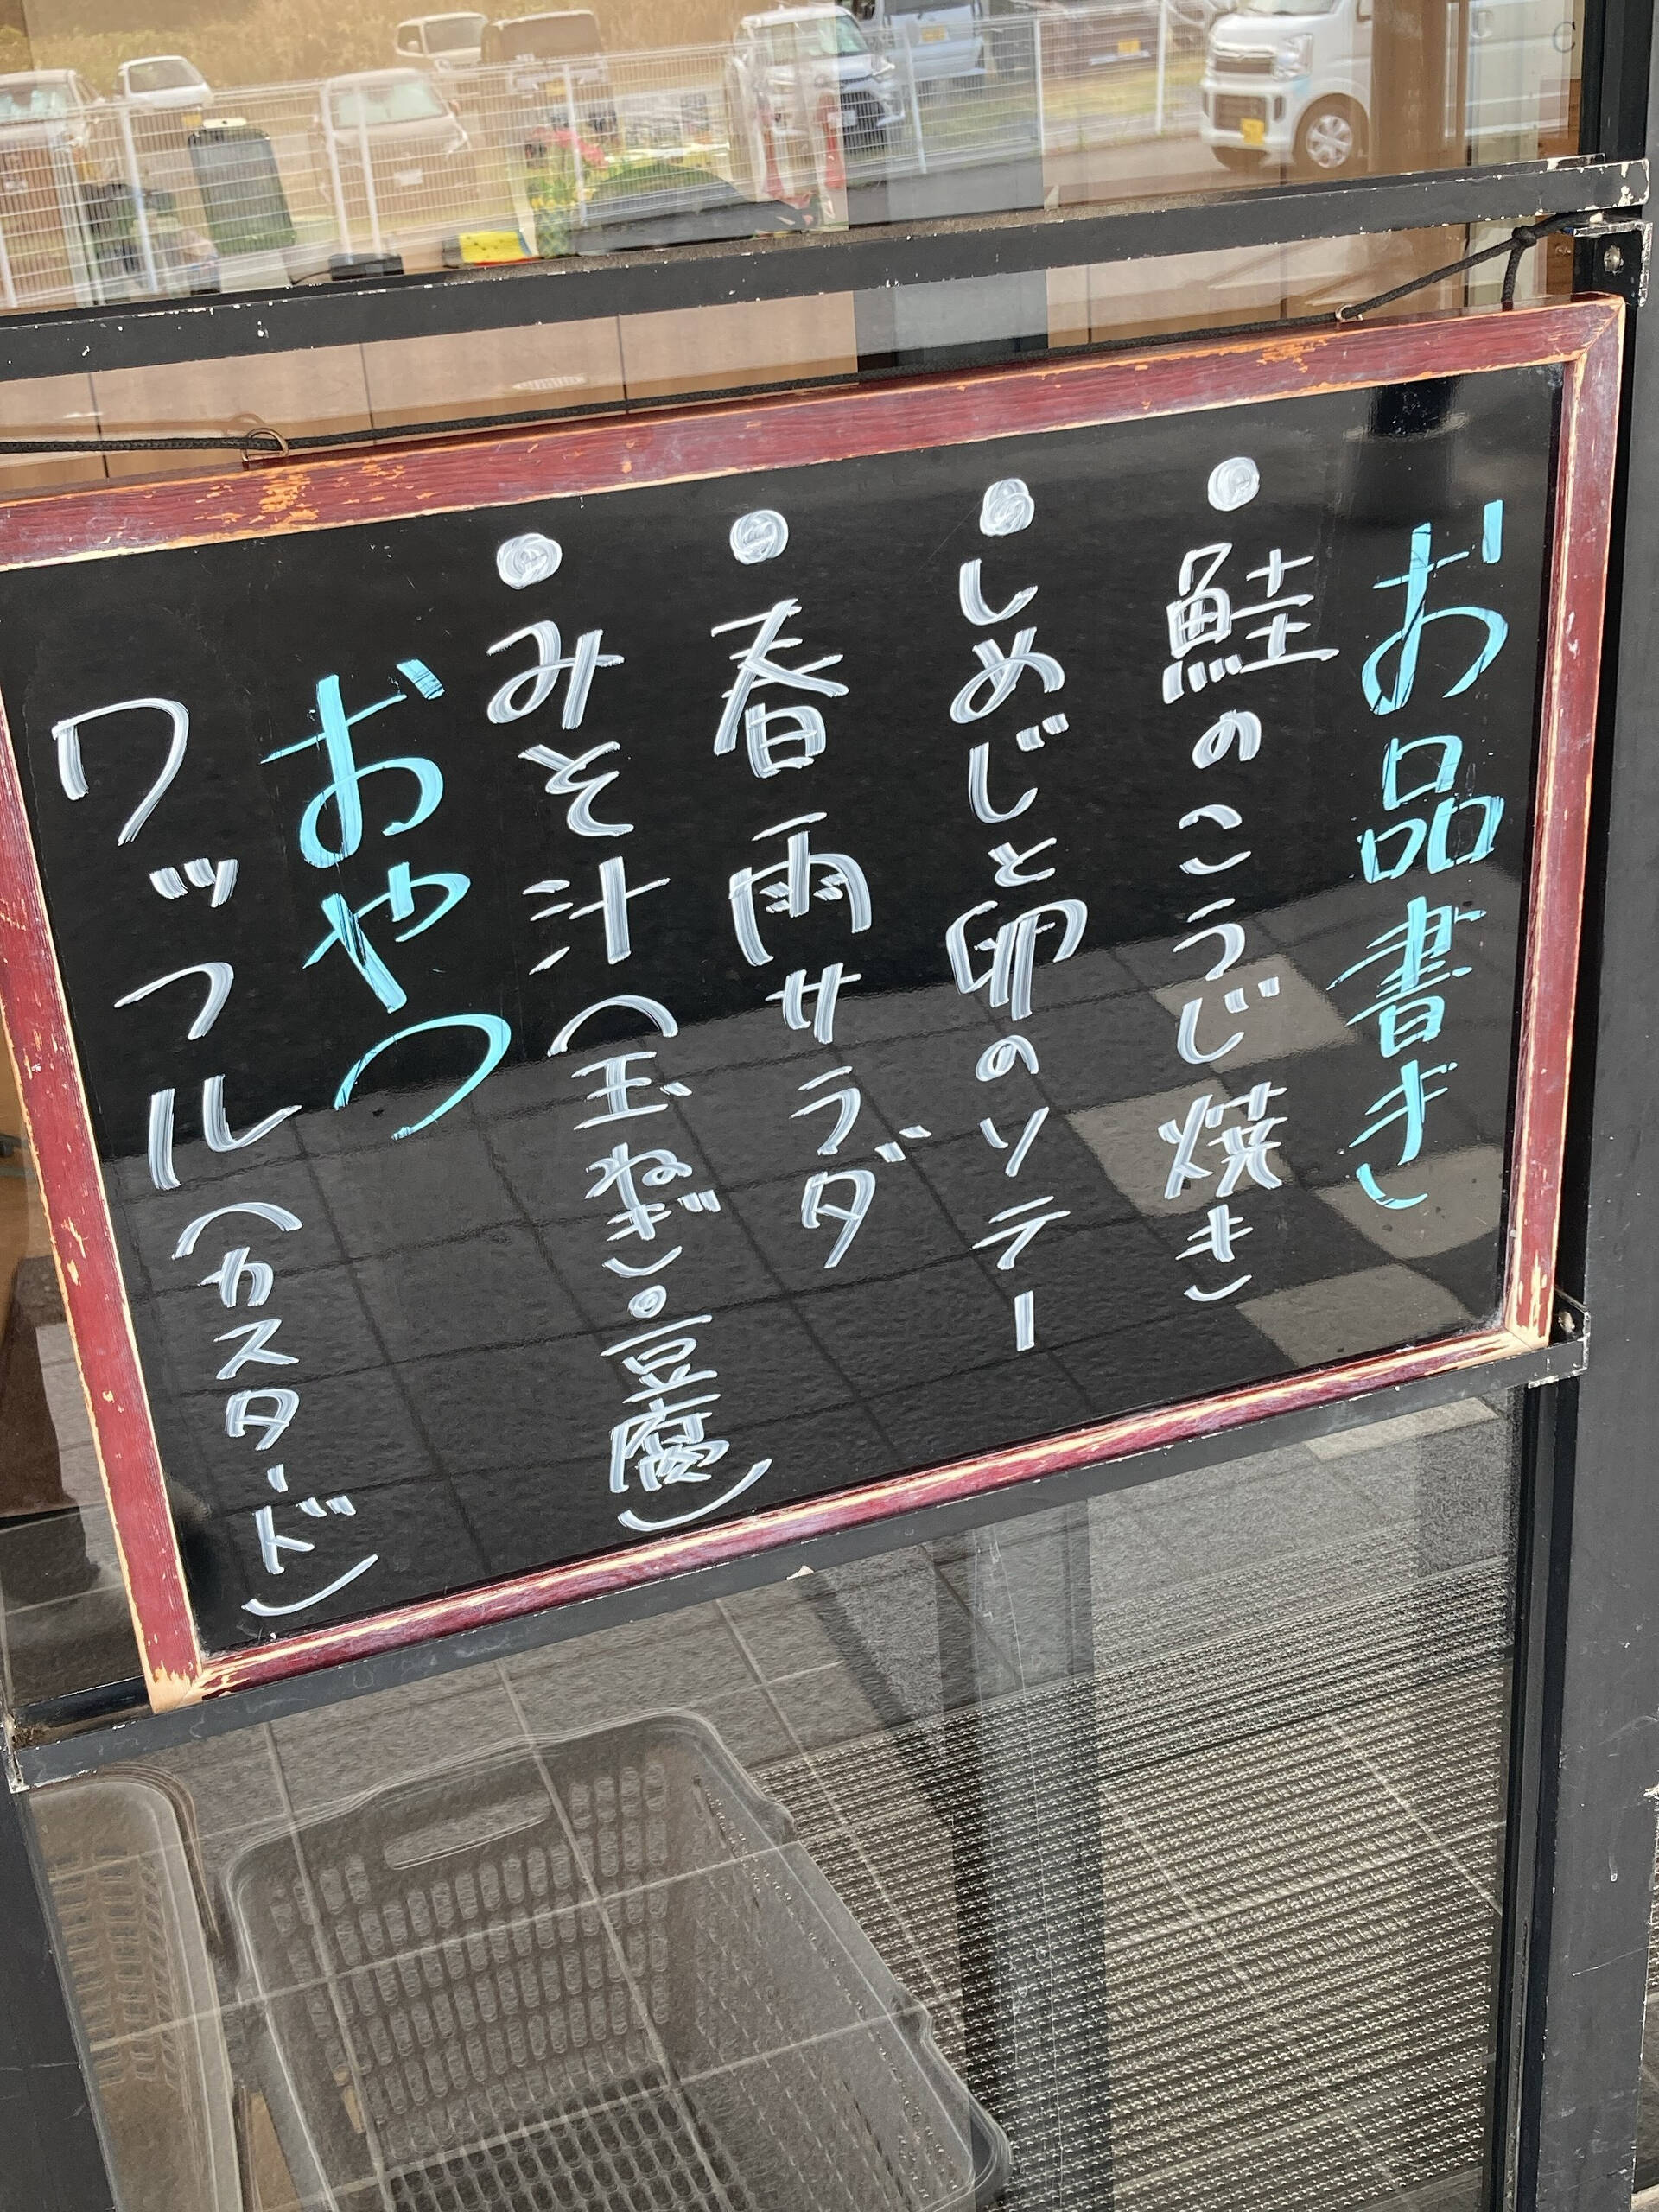 お品書き
●鮭のこうじ焼き
●しめじと卵のソテー
●春雨サラダ
●みそ汁(玉ねぎ。豆腐)
おやつ
ワッフル(カスタード)